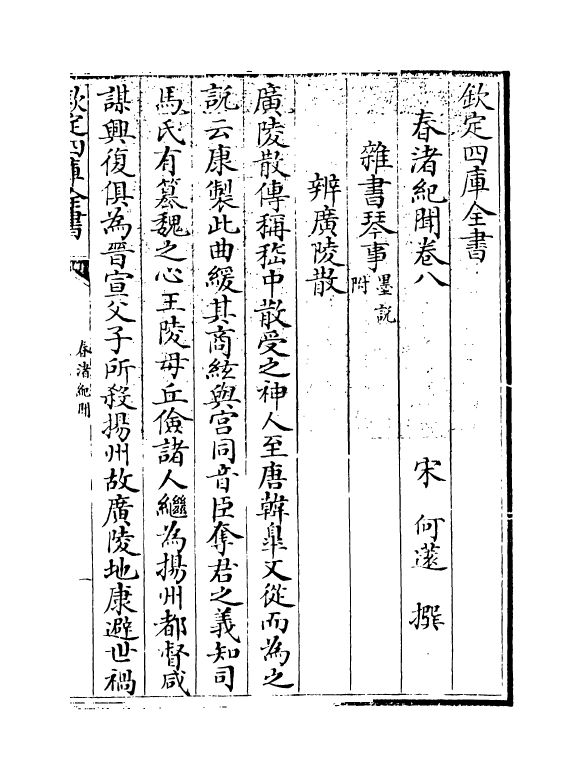 欽定四庫全書
春渚紀聞卷八
宋 何薳 撰
雜書琴事墨說附
辨廣陵散
廣陵散傳稱嵇中散受之神人至唐韓臯又從而為之
説云康製此曲緩其商絃與宫同音臣奪君之義知司
馬氏有簒魏之心王陵毋丘儉諸人繼為揚州都督咸
謀興復俱為晉宣父子所殺揚州故廣陵地康避世禍
欽定四庫全書
春渚紀聞
一